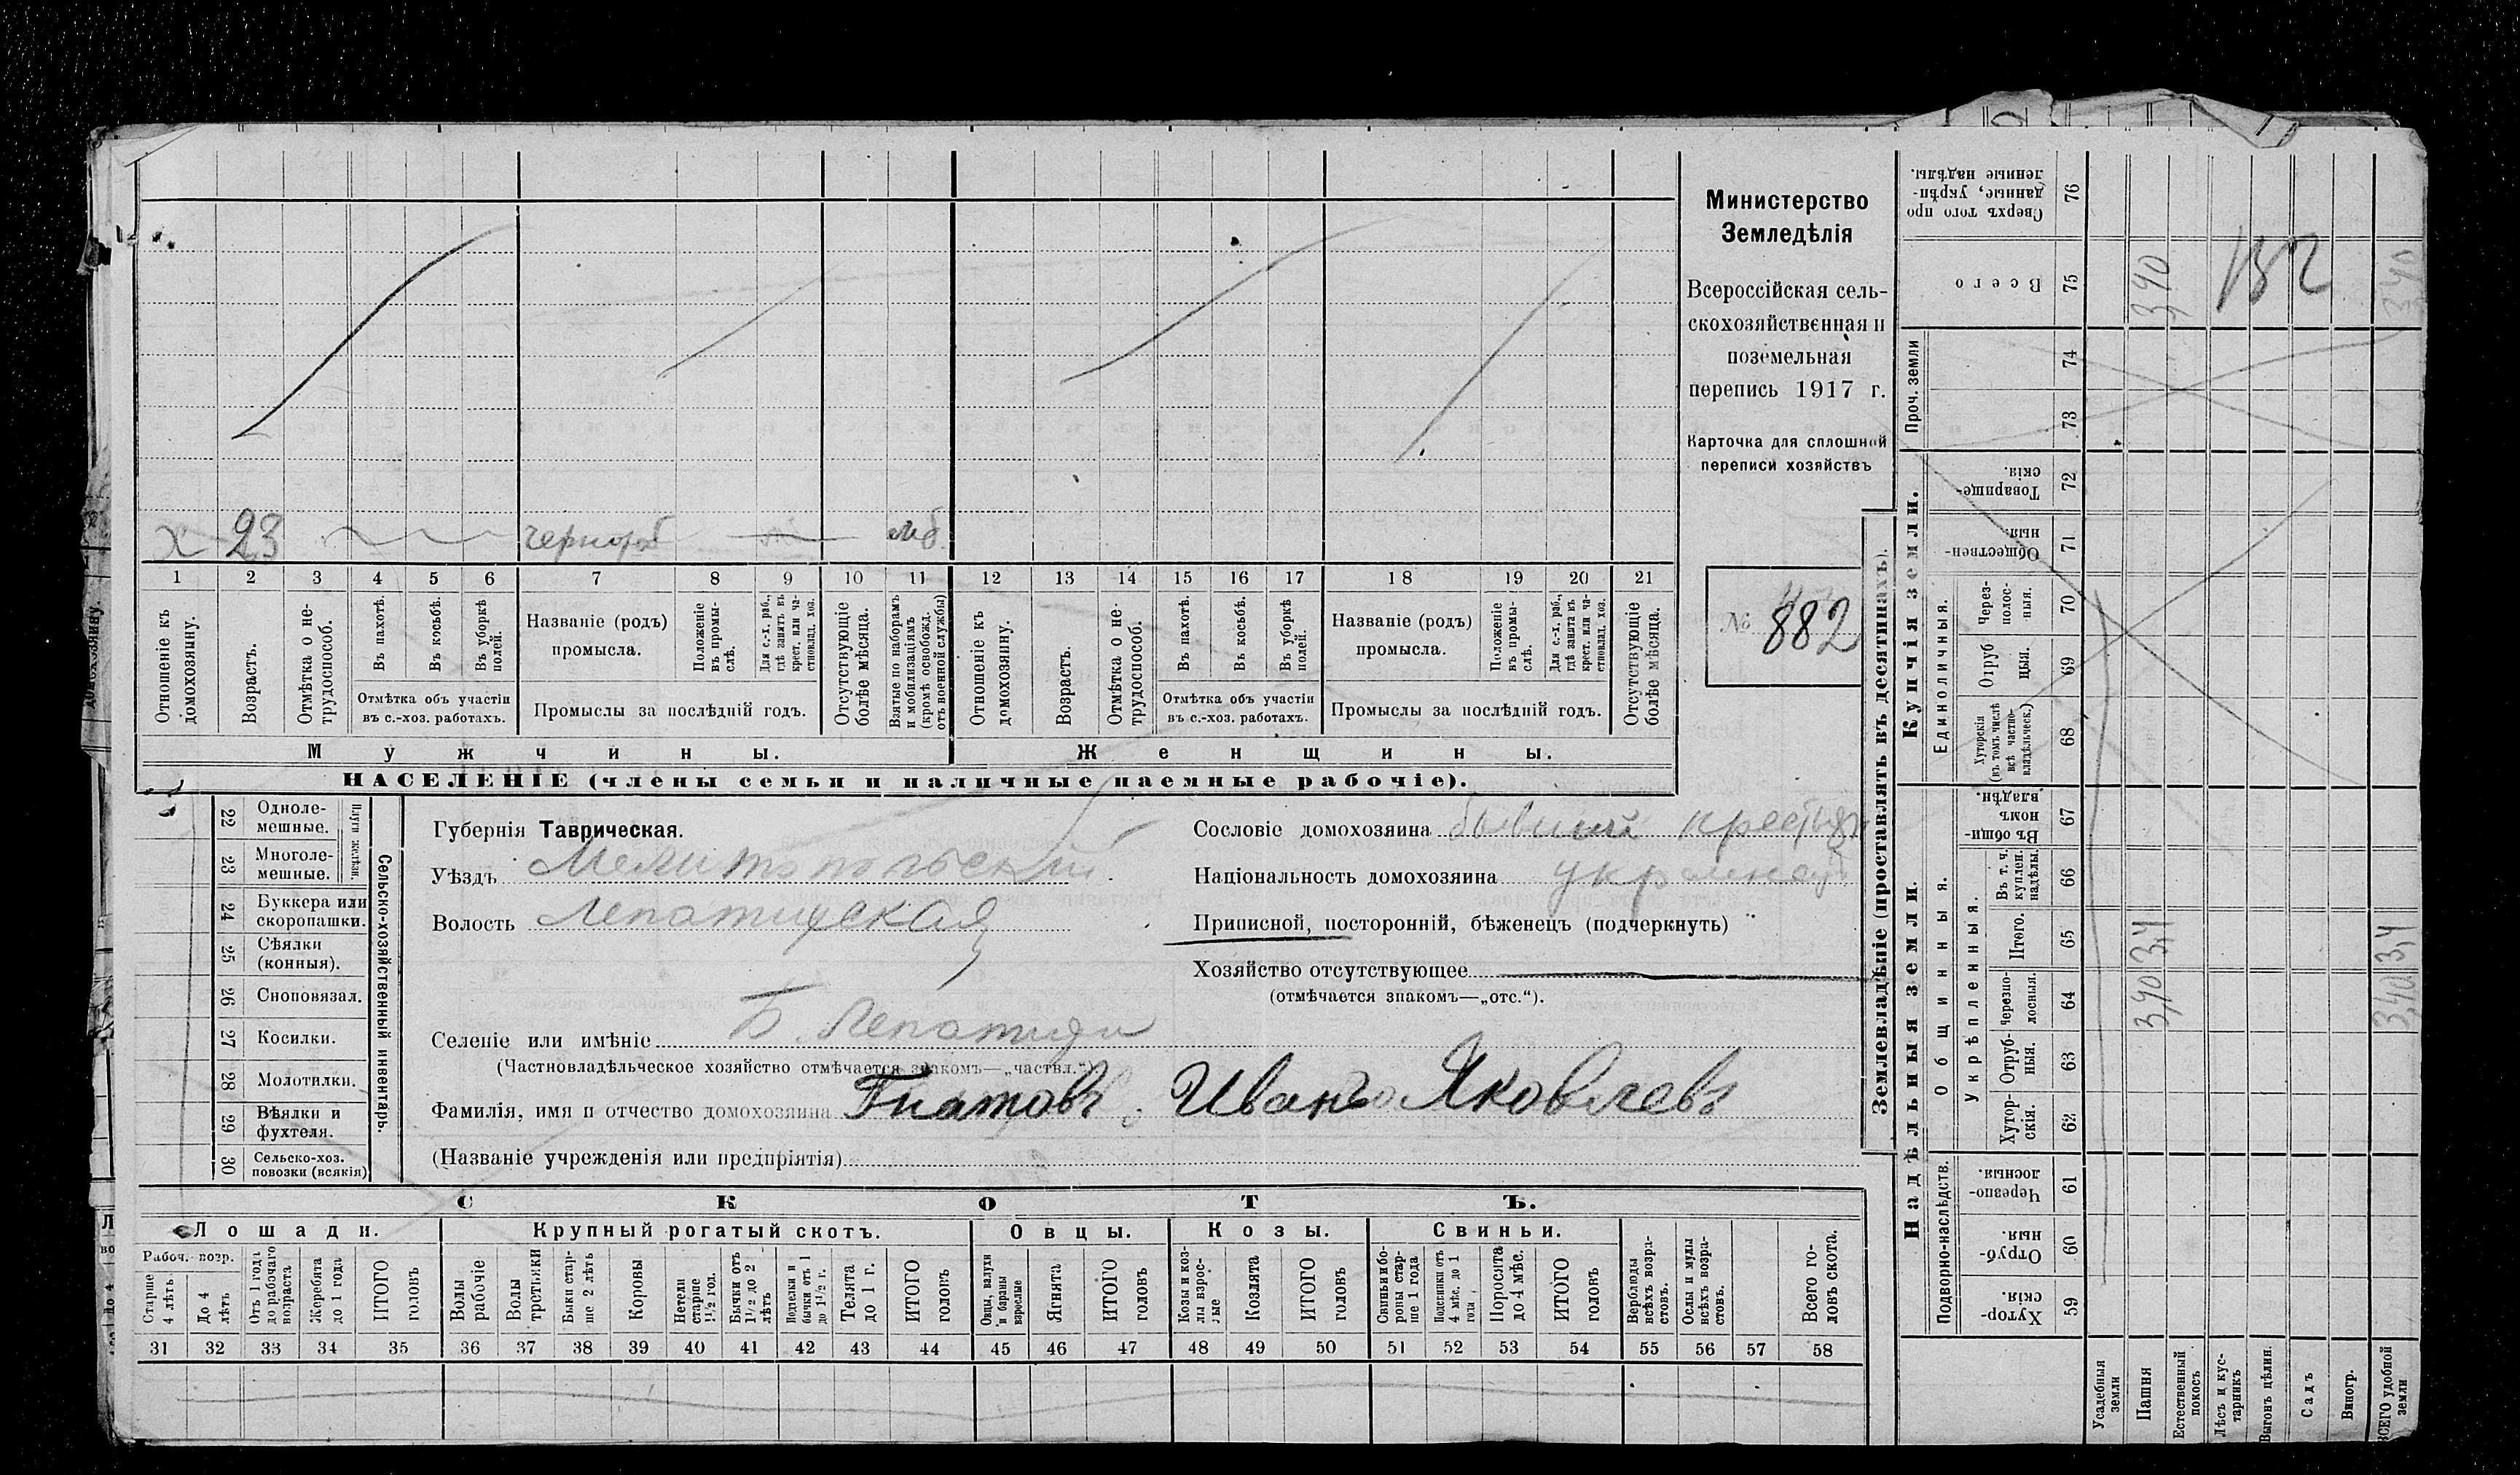 х 23 чернораб моб.
1 2 3 4 5 6 7 8 9 10 11 12 13 14 15 16 17 18 19 20 21
Отношеніе къ домохозяину.
Возрастъ.
Отмѣтка о не-
трудоспособ.
Въ пахотѣ.
Въ косьбѣ.
Въ уборкѣ
полей.
Отмѣтка объ участіи
въ с.-хоз. работахъ.
Названіе (родъ)
промысла.
Положеніе
въ промы-
слѣ.
Для с.-х. раб.,
гдѣ занятъ въ
крест. или ча-
стновлад. хоз.
Промыслы за послѣдній годъ.
Отсутствующіе
болѣе мѣсяца.
Взятые по наборамъ
и мобилизаціямъ
(кромѣ освобожд.
отъ военной службы)
Отношеніе къ
домохозяину.
Возрастъ.
Отмѣтка о не-
трудоспособ.
Въ пахотѣ.
Въ косьбѣ.
Въ уборкѣ
полей.
Отмѣтка объ участіи
въ с.-хоз. работахъ.
Названіе (родъ)
промысла.
Положеніе
въ промы-
слѣ.
Для с.-х. раб.,
гдѣ занята въ
крест. или ча-
стновлад. хоз.
Промыслы за послѣдній годъ.
Отсутствующіе
болѣе мѣсяца.
Мужчины.
Женщины.
НАСЕЛЕНІЕ (члены семьи и наличные наемные рабочіе).
Министерство
Земледѣлія
Всероссійская сель-
скохозяйственная и
поземельная
перепись 1917 г.
Карточка для сплошной
переписи хозяйствъ
№ 882
22 Одноле-
мешные.
23 Многоле-
мешные.
Плуги желѣзн.
24 Буккера или
скоропашки.
25 Сѣялки
(конныя).
26 Сноповязал.
27 Косилки.
28 Молотилки.
29 Вѣялки и
фухтеля.
30 Сельско-хоз.
повозки (всякія)
Сельско-хозяйственный инвентарь.
Губернія Таврическая.
Уѣздъ Мелитопольскій
Волость Лепатихская
Селеніе или имѣніе Б. Лепатиха
(Частновладѣльческое хозяйство отмѣчается знакомъ—„частвл.“)
Фамилія, имя и отчество домохозяина Гнатовъ Иванъ Яковлевъ
(Названіе учрежденія или предпріятія)
Сословіе домохозяина бывшій крестьян
Національность домохозяина украинец
Приписной, посторонній, бѣженецъ (подчеркнуть)
Хозяйство отсутствующее
(отмѣчается знакомъ—„отс.“).
СКОТЪ.
Лошади.
Крупный рогатый скотъ.
Овцы.
Козы.
Свиньи.
Рабоч. возр.
Старше
4 лѣтъ.
До 4
лѣтъ
Отъ 1 года
до рабочаго
возраста
Жеребята
до 1 года
ИТОГО
головъ
Волы
рабочіе
Волы
третьяки
Быки стар-
ше 2 лѣтъ
Коровы
Нетели
старше
1½ год.
Бычки отъ
1½ до 2
лѣтъ
Подтелки и
бычки отъ 1
до 1½ г.
Телята
до 1 г.
ИТОГО
головъ
Овцы, валухи
и бараны
взрослые
Ягнята
ИТОГО
головъ
Козы и коз-
лы взрос-
лые
Козлята
ИТОГО
головъ
Свиньи и бо-
ровы стар-
ше 1 года
Подсвинки отъ
4 мѣс. до 1
года
Поросята
до 4 мѣс.
ИТОГО
головъ
Верблюды
всѣхъ возра-
стовъ.
Ослы и мулы
всѣхъ возра-
стовъ.
Всего го-
ловъ скота.
31 32 33 34 35 36 37 38 39 40 41 42 43 44 45 46 47 48 49 50 51 52 53 54 55 56 57 58
Землевладѣніе (проставлять въ десятинахъ).
Сверхъ того про
данные, укрѣп-
ленные надѣлы.
76
Всего
75 3,40 152 3,40
Проч. земли
74
73
Купчія земли.
Товарище-
скія.
72
Обществен-
ныя.
71
Единоличныя.
Через-
полос-
ныя.
70
Отруб
цыя.
69
Хуторскія
(въ томъ числѣ
всѣ частно-
владѣльческ.)
68
Надѣльныя земли.
Общинныя.
Въ общи-
номъ
владѣн.
67
Укрѣпленныя.
Въ т. ч.
куплен.
надѣлы.
66
Итого.
65 3,4 3,4
Черезпо-
лосныя.
64 3,40 3,40
Отруб-
ныя.
63
Хутор-
скія.
62
Подворно-наслѣдств.
Черезпо-
лосныя.
61
Отруб-
ныя.
60
Хутор-
скія.
59
Усадебныя
земли
Пашня
Естественный
покосъ
Лѣсъ и кус-
тарникъ
Выгонъ цѣлин.
Садъ
Виногр.
ВСЕГО удобной
земли